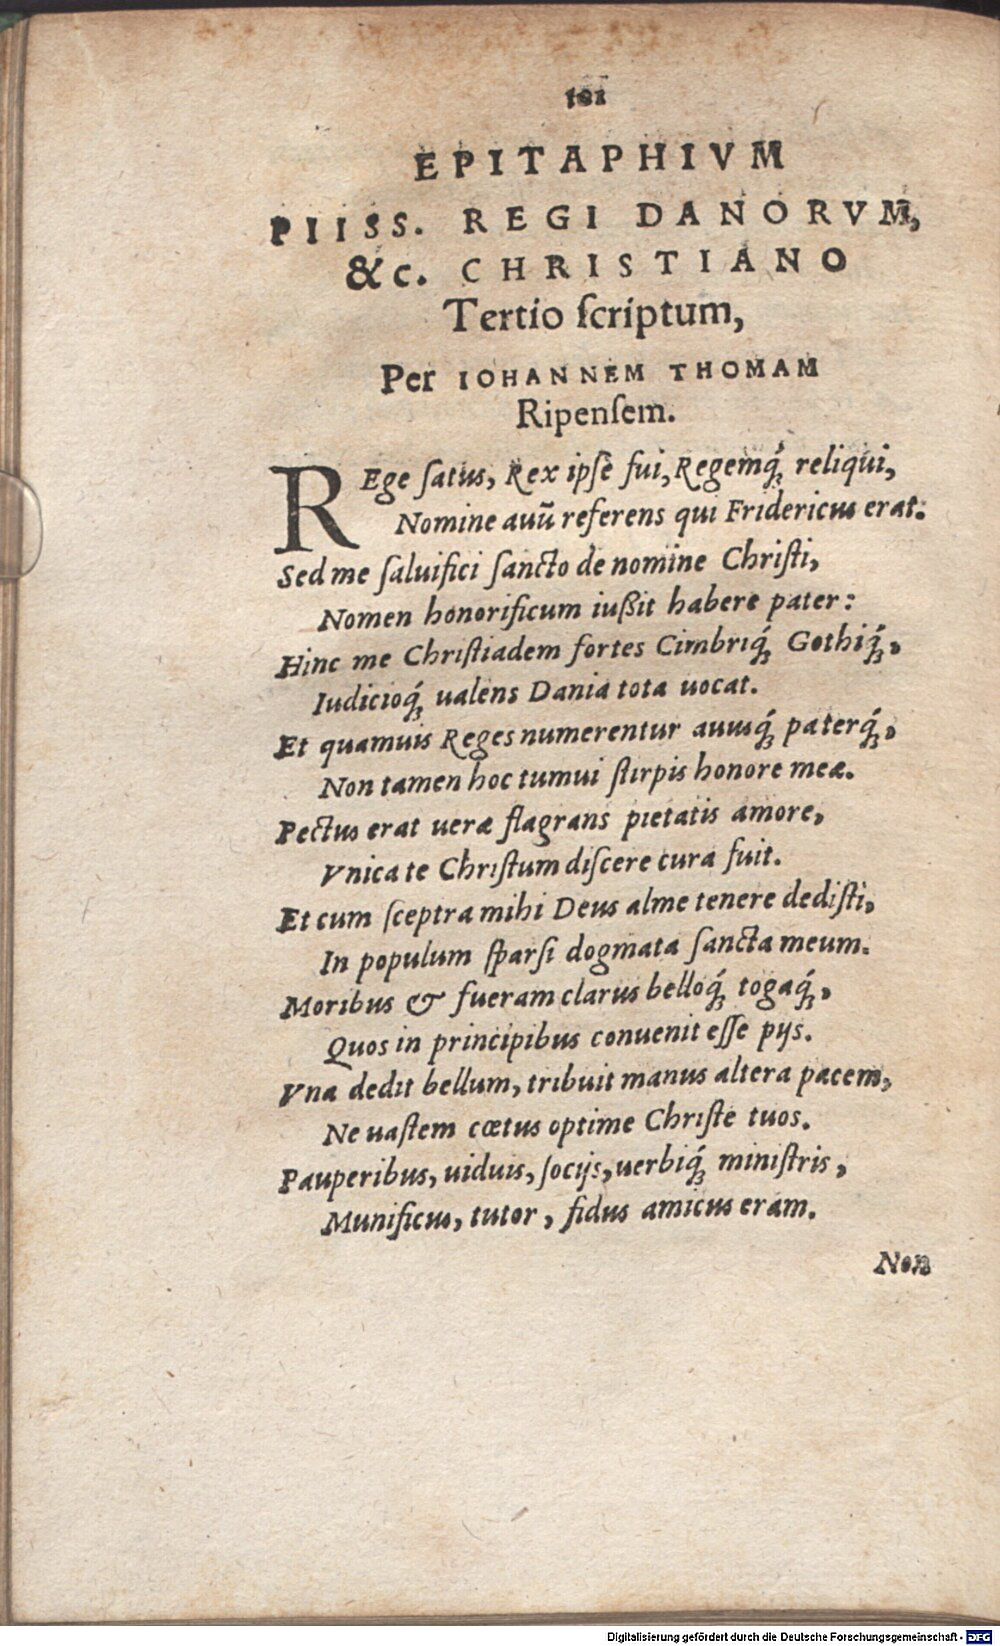 101
EPITAPHIVM
PIISS. REGI DANORVM,
&c. CHRISTIANO
Tertio ſcriptum,
Per IOHANNEM THOMAM
Ripenſem.
REge ſatus, Rex ipſe fui, Regemq́; reliqui,
Nomine auū referens qui Fridericus erat.
Sed me ſaluifici ſancto de nomine Chriſti,
Nomen honorificum iußit habere pater:
Hinc me Chriſtiadem fortes Cimbriq́; Gothiq́;,
Iudicioq́; ualens Dania tota uocat.
Et quamuis Reges numerentur auusq́; paterq́;,
Non tamen hoc tumui ſtirpis honore meæ.
Pectus erat ueræ flagrans pietatis amore,
Vnica te Chriſtum diſcere cura fuit.
Et cum ſceptra mihi Deus alme tenere dediſti,
In populum ſparſi dogmata ſancta meum.
Moribus & fueram clarus belloq́; togaq́;,
Quos in principibus conuenit eſſe pijs.
Vna dedit bellum, tribuit manus altera pacem,
Ne uaſtem cœtus optime Chriſte tuos.
Pauperibus, uiduis, ſocijs, uerbiq́; miniſtris,
Munificus, tutor, fidus amicus eram.
Non
Digitalisierung gefördert durch die Deutsche Forschungsgemeinschaft - DFG